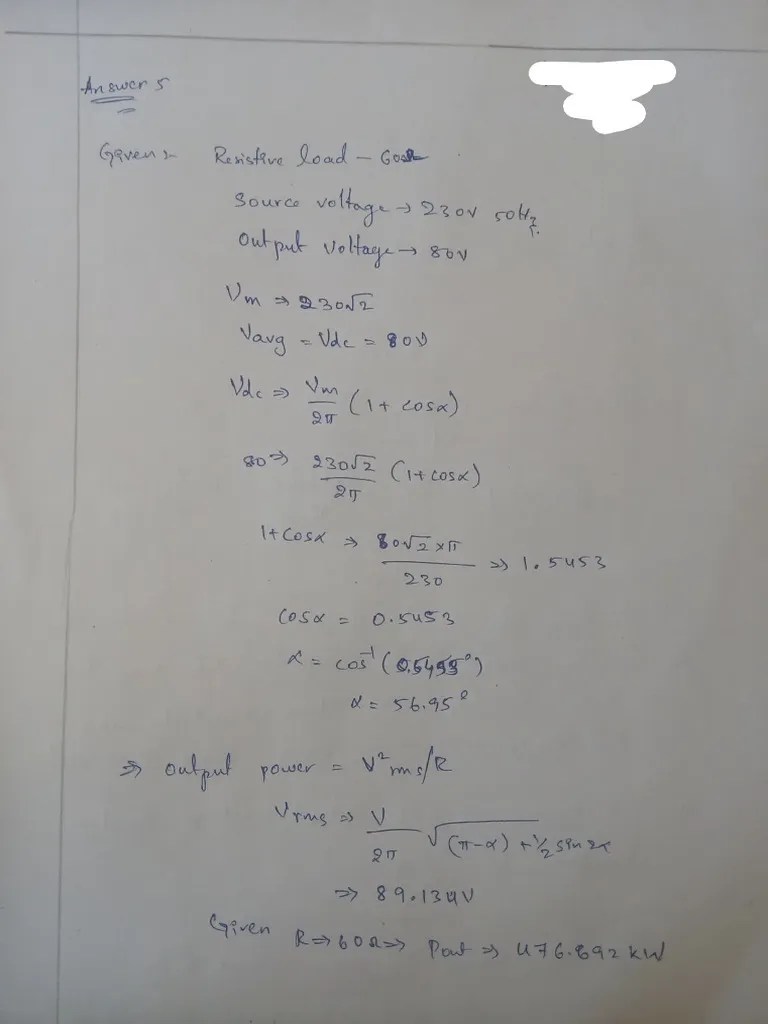 Answer 5
Given :- Resistive load - 60Ω
Source voltage → 230V 50Hz.
Output voltage → 80V
Vm ⇒ 230√2
Vavg = Vdc = 80V
Vdc ⇒ Vm/2π (1 + cosα)
80 ⇒ 230√2/2π (1 + cosα)
1 + cosα ⇒ 80√2 × π/230 ⇒ 1.5453
cosα = 0.5453
α = cos⁻¹(0.5453°)
α = 56.95°
⇒ output power = V²rms/R
Vrms ⇒ V/2π √(π-α) + ½ sin 2α
⇒ 89.134V
Given R ⇒ 60Ω ⇒ Pout ⇒ 476.892 kW